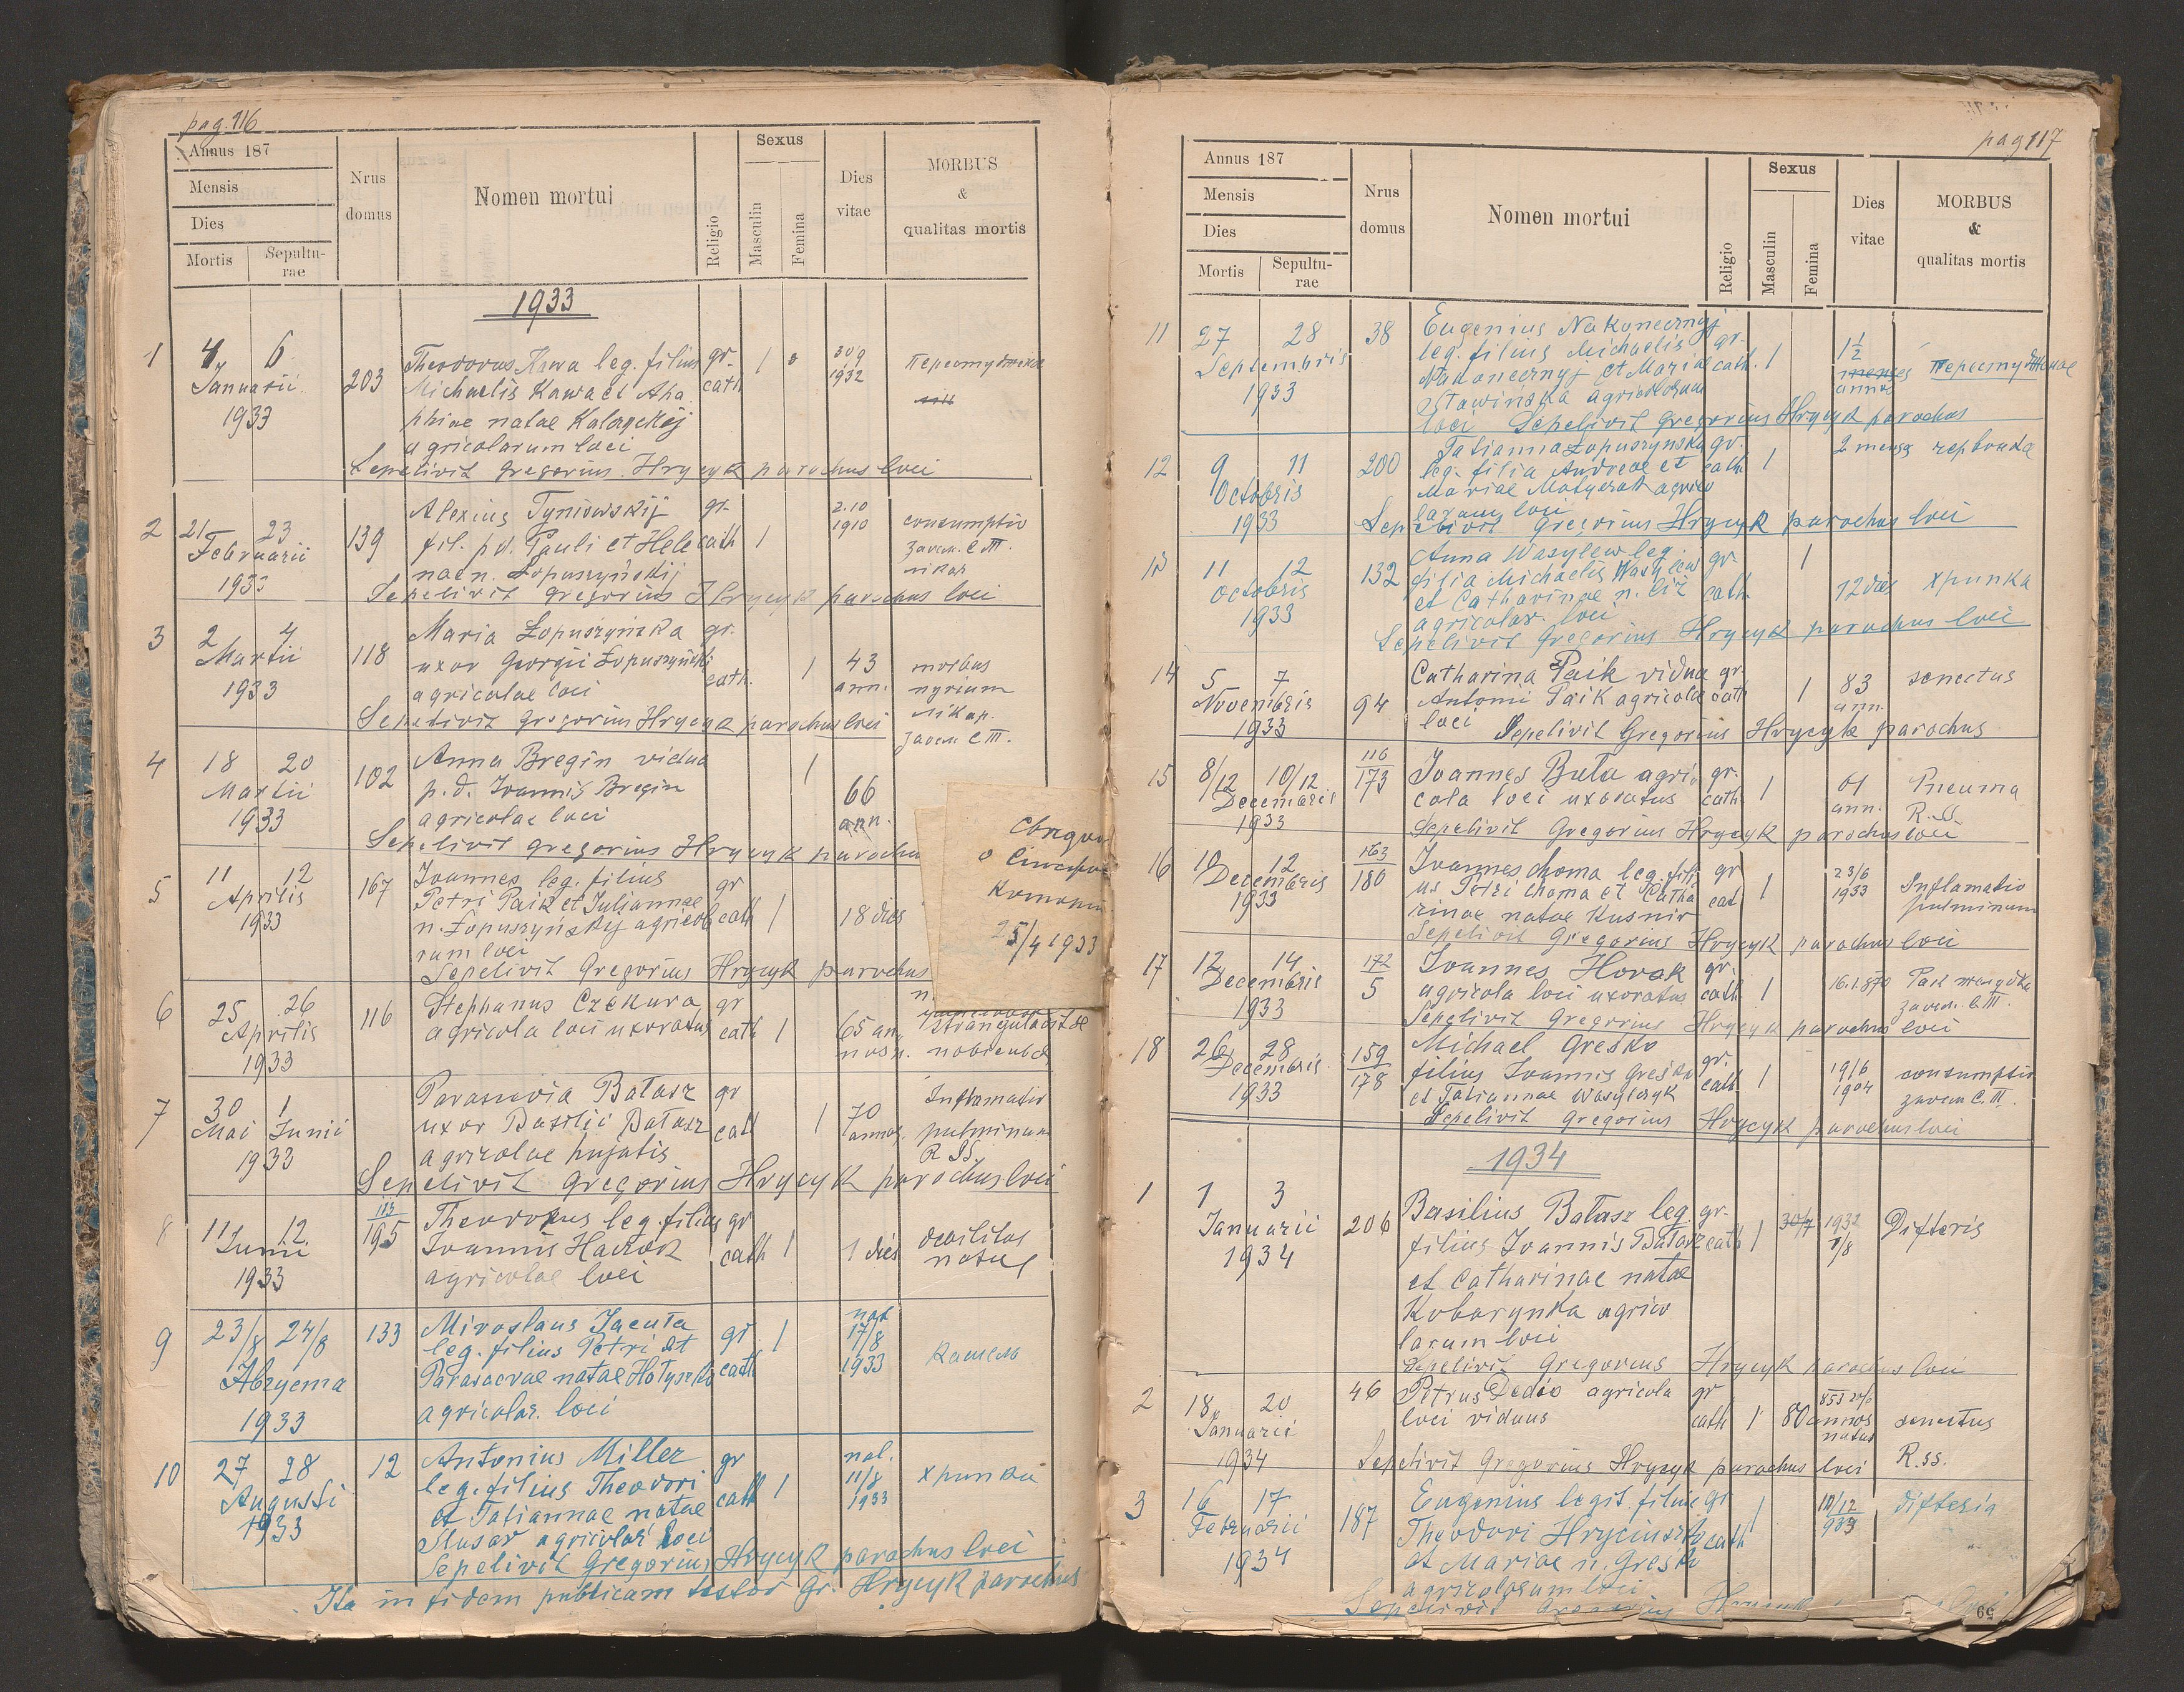 pag. 116
Annus 187
Mensis
Dies
Mortis
Sepultu-
rae
Nrus
domus
Nomen mortui
Religio
Sexus
Masculin
Femina
Dies
vitae
MORBUS
&
qualitas mortis
1933
1
4 6
Januarii
1933
203
Theodorus Kawa leg. filius
Michaelis Kawa et Aha
phiae natae
agricolarum loci
gr.
cath
1
30/9
1932
Sepelivit Gregorius Hrycyk parochus loci
2
21 23
Februarii
1933
139
Alexius Tyniowskij
fil. p.d. Pauli et Hele
nae n. Łopuszyńskij
gr.
cath
1
2.10
1910
consumptio
Sepelivit Gregorius Hrycyk parochus loci
3
2 4
Martii
1933
118
Maria Łopuszyńska
uxor Georgii Łopuszyński
agricolae loci
gr.
cath.
1
43
ann.
morbus
Sepelivit Gregorius Hrycyk parochus loci
4
18 20
Martii
1933
102
Anna Bregin vidua
p. d. Joannis Bregin
agricolae loci
1
66
ann.
Sepelivit Gregorius Hrycyk parochu
5
11 12
Aprilis
1933
167
Joannes leg. filius
Petri Paik et Juliannae
n. Łopuszynskij agricola
rum loci
gr
cath
1
18 dies
Sepelivit Gregorius Hrycyk parochus
25/4 1933
6
25 26
Aprilis
1933
116
Stephanus Czekura
agricola loci uxoratus
gr
cath
1
65 an
nos
7
30 1
Mai Junii
1933
Parascevia Bałasz
uxor Basilii Bałasz
agricolae hujatis
gr
cath
1
70
annos
Inflamatio
pulminum
R SS.
Sepelivit Gregorius Hrycyk parochus loci
8
11 12
Junii
1933
113
195
Theodorus leg. filius
Joannis
agricolae loci
gr
cath
1
1 dies
debilitas
natus
9
23/8 24/8
Августа
1933
133
Miroslaus Jacuta
leg. filius Petri et
Parascevae natae
agricolar. loci
gr
cath
1
nat
17/8
1933
кашель
10
27 28
Augusti
1933
12
Antonius Miller
leg. filius Theodori
et Tatiannae natae
Slusar agricolar loci
gr
cath
1
nat.
11/8
1933
хрипка
Sepelivit Gregorius Hrycyk parochus loci
Ita in fidem publicam testor Gr. Hrycyk parochus
pag 117
Annus 187
Mensis
Dies
Mortis
Sepultu-
rae
Nrus
domus
Nomen mortui
Religio
Sexus
Masculin
Femina
Dies
vitae
MORBUS
&
qualitas mortis
11
27 28
Septembris
1933
38
Eugenius Nakonecznyj
leg. filius Michaelis
Nakonecznyj et Maria
agricolarum
loci Sepelivit Gregorius Hrycyk parochus
gr.
cath.
1
1 1/2
menses
annos
12
9 11
Octobris
1933
200
Tatianna Łopuszynska
leg. filia Andreae et
Mariae agrico
larum loci
gr.
cath
1
2 menses
Sepelivit Gregorius Hrycyk parochus loci
13
11 12
Octobris
1933
132
Anna Wasylew leg.
filia Michaelis Wasylew
et Catharinae n.
agricolar. loci
gr.
cath.
1
12 dies
хрипка
Sepelivit Gregorius Hrycyk parochus loci
14
5 7
Novembris
1933
94
Catharina Paik vidua
Antonii Paik agricolae
loci Sepelivit Gregorius Hrycyk parochus
gr
cath
1
83
ann.
senectus
15
8/12 10/12
Decembris
1933
116
173
Joannes Buta agri
cola loci uxoratus
gr.
cath
1
61
ann.
Pneuma
R.S.
Sepelivit Gregorius Hrycyk parochus loci
16
10 12
Decembris
1933
163
180
Joannes Choma leg. fili
us Petri Choma et Catha
rinae natae Kusnir
gr
cat
1
23/6
1933
Inflamatio
pulminum
Sepelivit Gregorius Hrycyk parochus loci
17
12 14
Decembris
1933
172
5
Joannes Horak
agricola loci uxoratus
gr.
cath
1
16.1.870
Sepelivit Gregorius Hrycyk parochus loci
18
26 28
Decembris
1933
159
178
Michael Gresko
filius Joannis Gresko
et Tatiannae Wasylczyk
gr.
cath
1
19/6
1904
consumptio
Sepelivit Gregorius Hrycyk parochus loci
1934
1
1 3
Januarii
1934
206
Basilius Bałasz leg.
filius Joannis Bałasz
et Catharinae natae
Kobarynka agrico
larum loci
gr.
cath
1
30/7
1932
1/8
Difteris
Sepelivit Gregorius Hrycyk parochus loci
2
18 20
Januarii
1934
46
Petrus Dedio agricola
loci viduus
gr
cath
1
80 annos
natus
senectus
R.ss.
Sepelivit Gregorius Hrycyk parochus loci
3
16 17
Februarii
1934
187
Eugenius legit. filius
Theodori
et Mariae n. Gresko
agricolarum loci
gr
cath
1
10/12
933
difteria
Sepelivit Gregorius
59